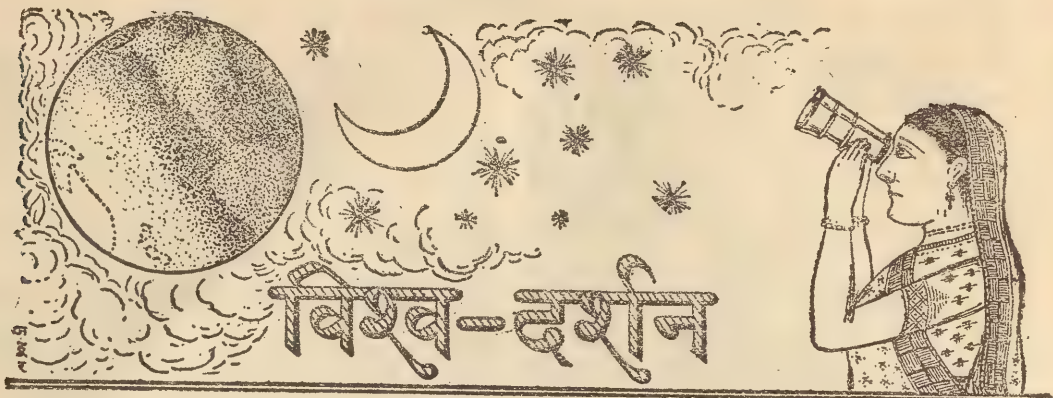 विश्व-दर्शन